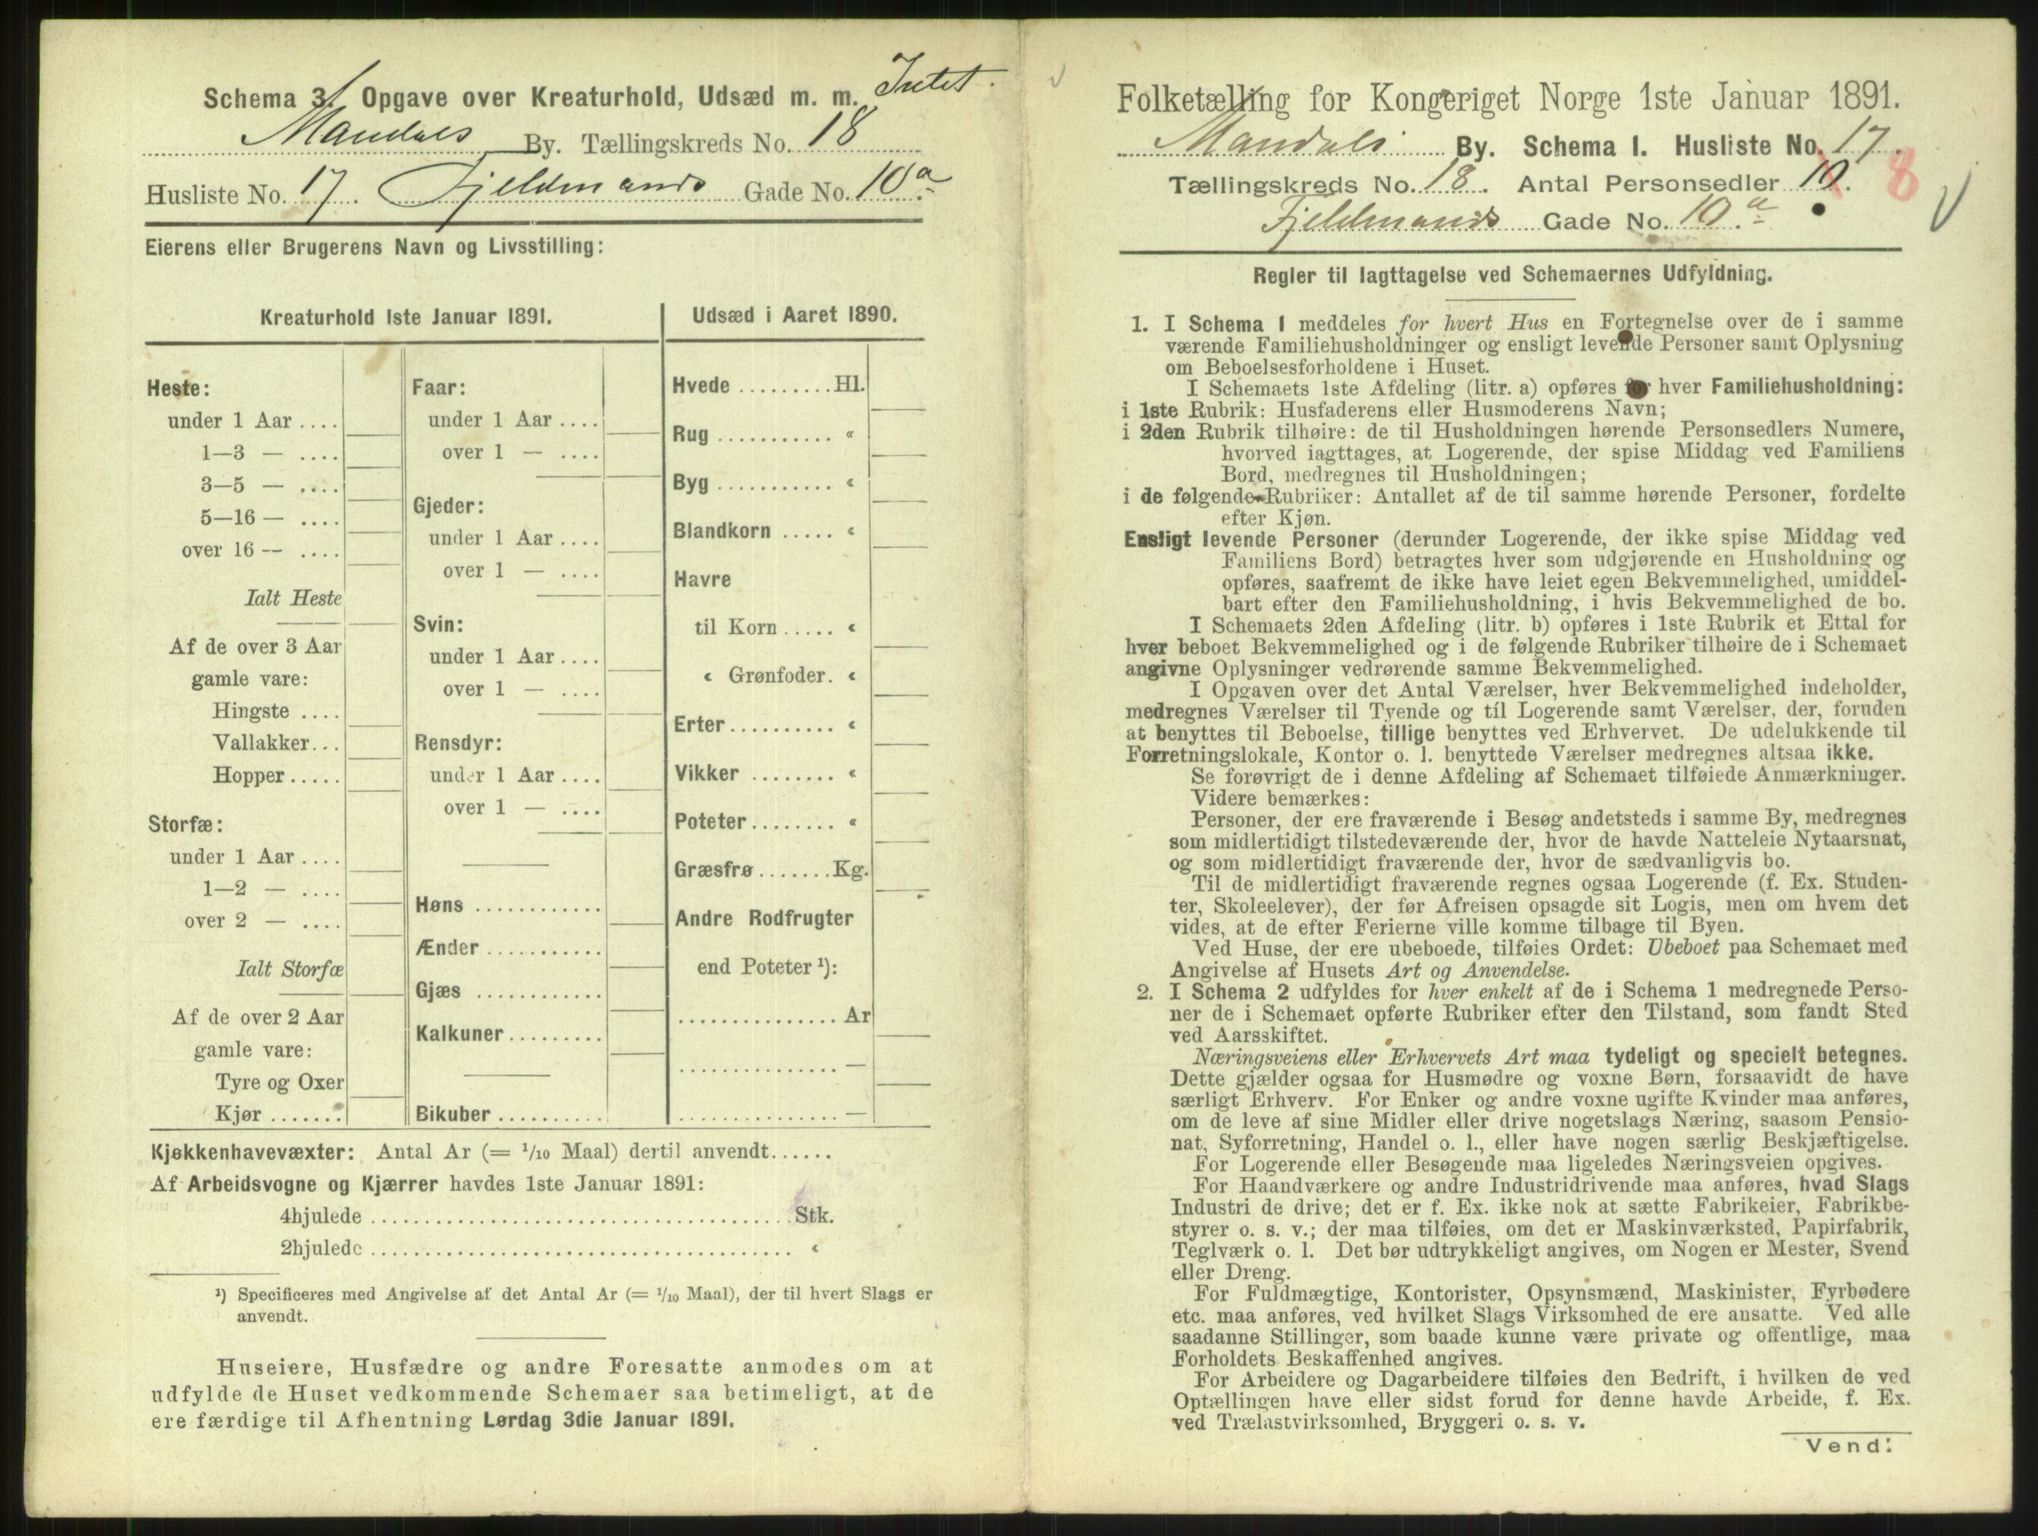 Schema 3. Opgave over Kreaturhold, Udsæd m. m. Intet.
Mandals By. Tællingskreds No. 18
Husliste No. 17. Fjeldmands Gade No. 10a
Eierens eller Brugerens Navn og Livsstilling:
Kreaturhold 1ste Januar 1891.
Heste:
under 1 Aar ....
1—3 — ....
3—5 — ....
5—16 — ....
over 16 — ....
Ialt Heste
Af de over 3 Aar
gamle vare:
Hingste ....
Vallakker...
Hopper .....
Storfæ:
under 1 Aar ....
1—2 — ....
over 2 — ....
Ialt Storfæ
Af de over 2 Aar
gamle vare:
Tyre og Oxer
Kjør .......
Faar:
under 1 Aar ....
over 1 — ....
Gjeder:
under 1 Aar ....
over 1 — ....
Svin:
under 1 Aar ....
over 1 — ....
Rensdyr:
under 1 Aar ....
over 1 — ....
Høns ............
Ænder ...........
Gjæs ............
Kalkuner.........
Bikuber ..........
Udsæd i Aaret 1890.
Hvede .........Hl.
Rug ........... «
Byg ........... «
Blandkorn ..... «
Havre
til Korn ..... «
« Grønfoder. «
Erter .......... «
Vikker ........ «
Poteter........ «
Græsfrø .......Kg.
Andre Rodfrugter
end Poteter ¹):
............... Ar
............... —
............... —
Kjøkkenhavevæxter: Antal Ar (= 1/10 Maal) dertil anvendt......
Af Arbeidsvogne og Kjærrer havdes 1ste Januar 1891:
4hjulede ....................................... Stk.
2hjulede ....................................... «
¹) Specificeres med Angivelse af det Antal Ar (= 1/10 Maal), der til hvert Slags er
anvendt.
Huseiere, Husfædre og andre Foresatte anmodes om at
udfylde de Huset vedkommende Schemaer saa betimeligt, at de
ere færdige til Afhentning Lørdag 3die Januar 1891.
Folketælling for Kongeriget Norge 1ste Januar 1891.
Mandals By. Schema 1. Husliste No. 17.
Tællingskreds No. 18. Antal Personsedler 10. 8
Fjeldmands Gade No. 10a
Regler til Iagttagelse ved Schemaernes Udfyldning.
1. I Schema 1 meddeles for hvert Hus en Fortegnelse over de i samme
værende Familiehusholdninger og ensligt levende Personer samt Oplysning
om Beboelsesforholdene i Huset.
I Schemaets 1ste Afdeling (litr. a) opføres for hver Familiehusholdning:
i 1ste Rubrik: Husfaderens eller Husmoderens Navn;
i 2den Rubrik tilhøire: de til Husholdningen hørende Personsedlers Numere,
hvorved iagttages, at Logerende, der spise Middag ved Familiens
Bord, medregnes til Husholdningen;
i de følgende Rubriker: Antallet af de til samme hørende Personer, fordelte
efter Kjøn.
Ensligt levende Personer (derunder Logerende, der ikke spise Middag ved
Familiens Bord) betragtes hver som udgjørende en Husholdning og
opføres, saafremt de ikke have leiet egen Bekvemmelighed, umiddel-
bart efter den Familiehusholdning, i hvis Bekvemmelighed de bo.
I Schemaets 2den Afdeling (litr. b) opføres i 1ste Rubrik et Ettal for
hver beboet Bekvemmelighed og i de følgende Rubriker tilhøire de i Schemaet
angivne Oplysninger vedrørende samme Bekvemmelighed.
I Opgaven over det Antal Værelser, hver Bekvemmelighed indeholder,
medregnes Værelser til Tyende og til Logerende samt Værelser, der, foruden
at benyttes til Beboelse, tillige benyttes ved Erhvervet. De udelukkende til
Forretningslokale, Kontor o. l. benyttede Værelser medregnes altsaa ikke.
Se forøvrigt de i denne Afdeling af Schemaet tilføiede Anmærkninger.
Videre bemærkes:
Personer, der ere fraværende i Besøg andetsteds i samme By, medregnes
som midlertidigt tilstedeværende der, hvor de havde Natteleie Nytaarsnat,
og som midlertidigt fraværende der, hvor de sædvanligvis bo.
Til de midlertidigt fraværende regnes ogsaa Logerende (f. Ex. Studen-
ter, Skoleelever), der før Afreisen opsagde sit Logis, men om hvem det
vides, at de efter Ferierne ville komme tilbage til Byen.
Ved Huse, der ere ubeboede, tilføies Ordet: Ubeboet paa Schemaet med
Angivelse af Husets Art og Anvendelse.
2. I Schema 2 udfyldes for hver enkelt af de i Schema 1 medregnede Perso-
ner de i Schemaet opførte Rubriker efter den Tilstand, som fandt Sted
ved Aarsskiftet.
Næringsveiens eller Erhvervets Art maa tydeligt og specielt betegnes.
Dette gjælder ogsaa for Husmødre og voxne Børn, forsaavidt de have
særligt Erhverv. For Enker og andre voxne ugifte Kvinder maa anføres,
om de leve af sine Midler eller drive nogetslags Næring, saasom Pensio-
nat, Syforretning, Handel o. l., eller have nogen særlig Beskjæftigelse.
For Logerende eller Besøgende maa ligeledes Næringsveien opgives.
For Haandværkere og andre Industridrivende maa anføres, hvad Slags
Industri de drive; det er f. Ex. ikke nok at sætte Fabrikeier, Fabrikbe-
styrer o. s. v.; der maa tilføies, om det er Maskinværksted, Papirfabrik,
Teglværk o. l. Det bør udtrykkeligt angives, om Nogen er Mester, Svend
eller Dreng.
For Fuldmægtige, Kontorister, Opsynsmænd, Maskinister, Fyrbødere
etc. maa anføres, ved hvilket Slags Virksomhed de ere ansatte. Ved alle
saadanne Stillinger, som baade kunne være private og offentlige, maa
Forholdets Beskaffenhed angives.
For Arbeidere og Dagarbeidere tilføies den Bedrift, i hvilken de ved
Optællingen have eller sidst forud for denne havde Arbeide, f. Ex.
ved Trælastvirksomhed, Bryggeri o. s. v.
Vend!